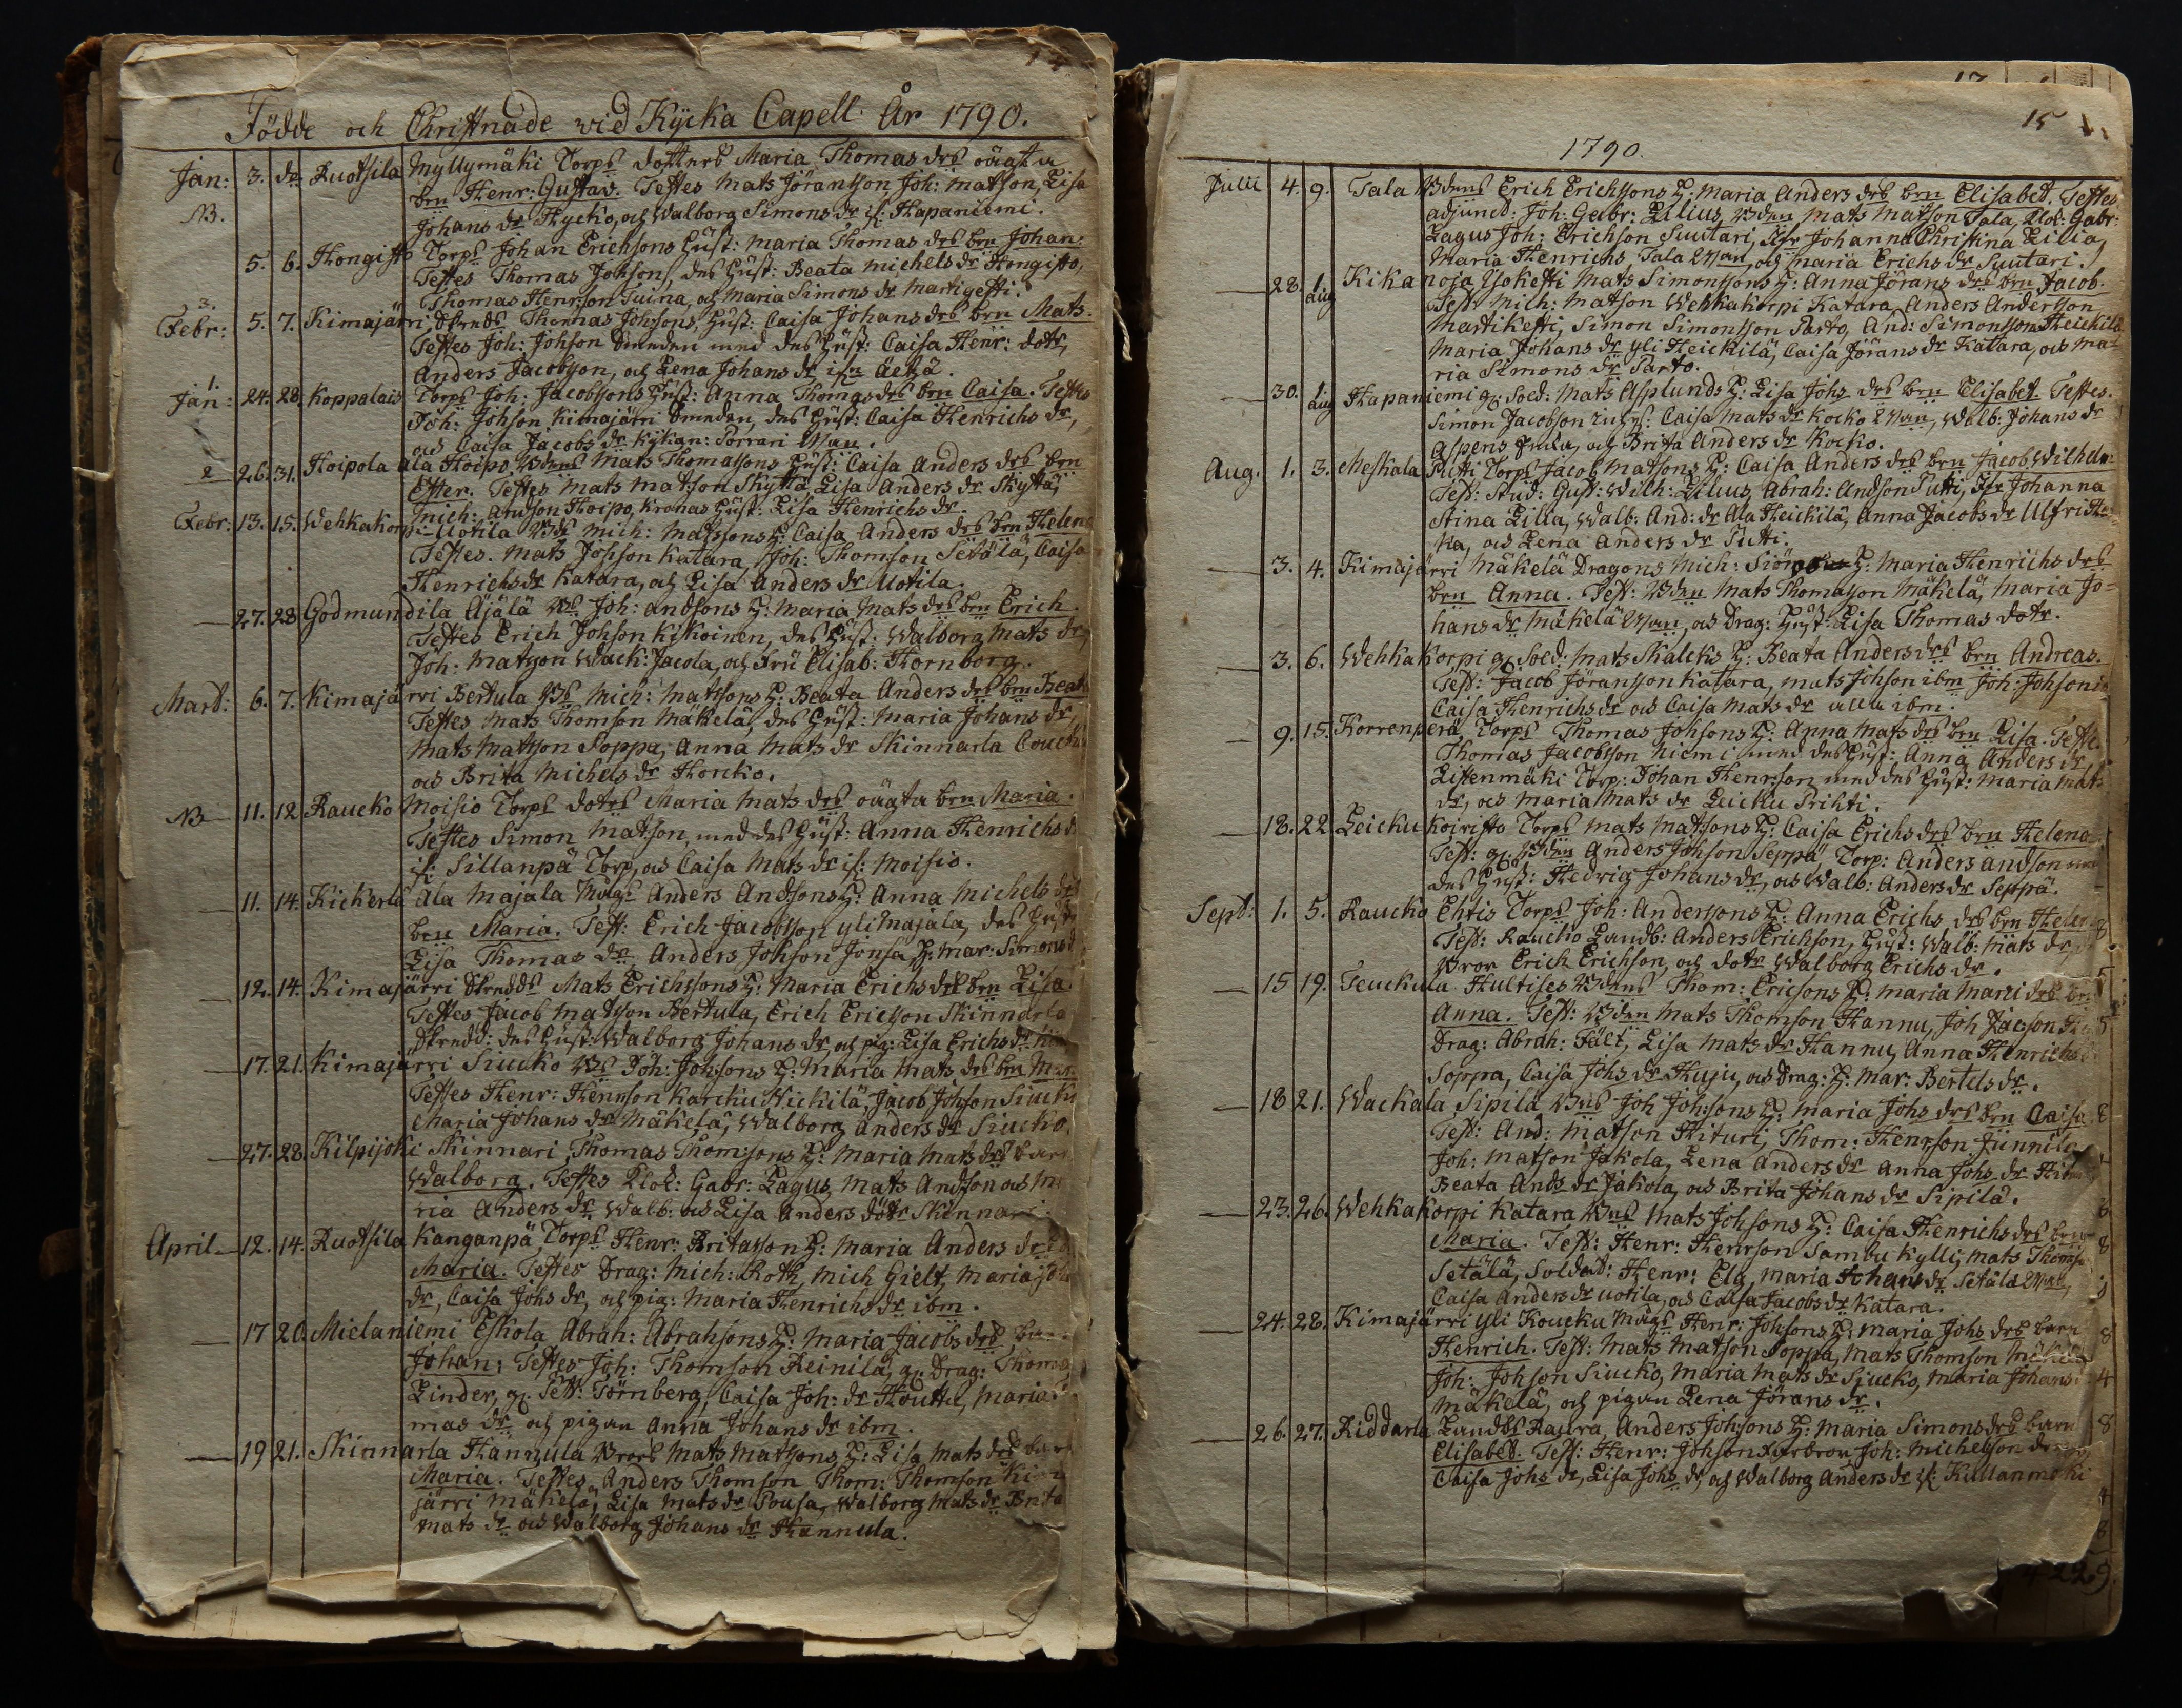 14
Födde och Christnade vid Kycka Capell År 1790.
Jan: 3. do Ruotsila Myllymäki Torps dotters Maria Thomas drs oägta
NB. brn Henr: Gustav. Testes Mats Jöransson, Joh: Matson, Lisa
Johans dr Hycko, och Walborg Simons dr if: Hapaniemi.
5. 6. Hongisto Torps Johan Erichsons hust: Maria Thomas drs brn Johan.
Testes Thomas Johson, des hust: Beata Michels dr Hongisto,
Thomas Henrson Tuina, och Maria Simons dr Martigesti.
3.
Febr: 5. 7. Kimajärri, Skredds Thomas Johsons, hust: Caisa Johans drs brn Mats.
Testes Joh: Johson Smeden med des hust: Caisa Henr: dotr,
Anders Jacobson, och Lena Johans dr
1.
Jan: 24. 28. Koppalais Torps Joh: Jacobsons hust: Anna Thomas drs brn Caisa. Testes
Joh: Johson Kimajärri Smeden, des hust: Caisa Henrichs dr,
och Caisa Jacobs dr Kykan: Porrari
2 26. 31. Hoipola ala Hoipo, Bdens Mats Thomassons hust: Caisa Anders drs brn
Ester. Testes Mats Matson Skyttä Lisa Anders dr Skyttä,
Mich: Andson Hoipo, Kronas hust: Lisa Henrichs dr.
Febr: 13. 15. Wehkakorpi Uotila Bds Mich: Matssons h: Caisa Anders drs brn Helena
Testes. Mats Johson Katara, Joh: Thomson Setälä, Caisa
Henrichs dr Katara, och Lisa Anders dr Uotila.
— 27. 28 Godmundila Äjälä Bds Joh: Andsons h: Maria Mats drs brn Erich.
Testes Erich Johson Kikoinen, des hust: Walborg Mats dr,
Joh: Matson Wack: Jacola, och Fru Elisab: Hornborg.
Mart: 6. 7. Kimajärri Bertula Bds Mich: Matssons h: Beata Anders drs brn Beat
Testes Mats Thomson Mäkelä, des hust: Maria Johans dr,
Mats Matson Soppa, Anna Mats dr Skinnarla
och Brita Michels dr Horcko.
NB— 11. 12 Raucko Moisio Torps dotrs Maria Mats drs oägta brn Maria.
Testes Simon Matson, med des hust: Anna Henrichs d
if: Sillanpä Torp, och Caisa Mats dr if: Moisio.
— 11. 14. Kickerlä Ala Majala Anders Andsons h: Anna Michels drs
brn Maria. Test: Erich Jacobsson yli Majala, des hust
Lisa Thomas dr, Anders Johson Jonsa h: Mar: Simons d
— 12. 14. Kimajärri Skredds Mats Erichssons h: Maria Erichs drs brn Lisa.
Testes Jacob Matson Bertula, Erich Ericson Skinnarla
Skredd: des hust: Walborg Johans dr och pig: Lisa Erichs dr
— 17. 21. Kimajärri Siucko Bds Joh: Johsons h: Maria Mats drs brn
Testes Henr: Henrson Karchu Kickilä, Jacob Johson Siucko
Maria Johans dr Mäkelä, Walborg Anders dr Siucko.
— 27. 28. Kilpijoki Skinnari Thomas Thomsons h: Maria Mats drs barn
Walborg. Testes Gabr: Lagus, Mats Andson och Ma
ria Anders dr Walb: och Lisa Anders dotr Skinnari.
April— 12. 14. Ruotsila Kanganpä Torps Henr: Britasson h: Maria Anders dr
Maria. Testes Drag: Mich: Roth, Mich Gielt, Maria Joha
dr, Caisa Johs dr, och pig: Maria Henrichs dr ibm.
— 17 20. Mielaniemi Eskola Abrah: Abrahsons h: Maria Jacobs drs barn
Johan, Testes Joh: Thomson Heinilä, gl: Drag: Thoma
Linder, gl: Törnberg, Caisa Joh: dr Houtta, Maria
mas dr och pigan Anna Johans dr ibm.
— 19 21. Skinnarla Hannula Mats Matssons h: Lisa Mats drs bar
Maria. Testes Anders Thomson Thom: Thomson Kim
järri Mäkelä, Lisa Mats dr Pousa, Walborg Mats dr Brita
Mats dr och Walborg Johans dr Hannula.
15
1790.
Julii 4. 9. Tala Bdens Erich Erichssons h: Maria Anders drs brn Elisabet. Testes
adjunct: Joh: Gabr: Lilius, Bden Mats Matson Tala, Gabr:
Lagus Joh: Erichson Suutari, Jfr Johanna Christina Lilia,
Maria Henrichs Tala och Maria Erichs dr Suutari.
— 28. 1. aug Kikanoja Yokesti Mats Simonssons h: Anna Jörans drs brn Jacob.
Test: Mich: Matson Wehkakorpi Katara, Anders Andersson
Martikesti, Simon Simonsson Parto, And: Simonsson Heickilä
Maria Johans dr yli Heickilä, Caisa Jörans dr Katara, och Ma=
ria Simons dr Parto.
— 30. 1 aug Hapaniemi gl: Sold: Mats Asplunds h: Lisa Johs drs brn Elisabet. Testes.
Simon Jacobson Caisa Mats dr Kocko Walb: Johans dr
Aspens och Brita Anders dr Kocko.
Aug. 1. 3. Meskala Putti Torps Jacob Matsons h: Caisa Anders drs brn Jacob Wilhelm:
Test: Stud: Gust: Wilh: Lilius, Abrah: Andson Putti, Jfr Johanna
Stina Lilia, Walb: And: dr Ala Heickilä, Anna Jacobs dr
ka, och Lena Anders dr Putti.
— 3. 4. Kimajärri Mäkelä Dragons Mich: h: Maria Henrichs drs
brn Anna. Test: Bden Mats Thomasson Mäkelä, Maria Jo=
hans dr Mäkelä och Drag: hust: Lisa Thomas dotr.
— 3. 6. Wehkakorpi gl: Sold: Mats Skalcks h: Beata Anders drs brn Andreas.
Test: Jacob Jöransson Katara, Mats Johson ibm Joh: Johson
Caisa Henrichs dr och Caisa Mats dr alla ibm.
— 9. 15. Korrenperä Torps Thomas Johsons h: Anna Mats drs brn Lisa. Teste.
Thomas Jacobsson Niemi med des hust: Anna Anders dr
Listenmäki Torp: Johan Henrson med des hust: Maria Mats
dr, och Maria Mats dr Leicku Prihti.
— 18. 22 Leicku Koiristo Torps Mats Matsons h: Caisa Erichs drs brn Helena
Test: gl: Bden Anders Johson Seppä Torp: Anders Andson
des hust: Hedvig Johans dr, och Walb: Anders dr Seppä.
Sept: 1. 5. Raucko Ehtis Torps Joh: Anderssons h: Anna Erichs drs brn Helen
Test: Raucko Landb: Anders Erichson, hust: Walb: Mats dr,
Bror Erich Erichson, och dotr Walborg Erichs dr.
— 15 19. Teuckula Hultises Bdens Thom: Ericsons h: Maria Marci drs brn
Anna. Test: Bden Mats Thomson Hannu, Joh
Drag: Abrah: Fält, Lisa Mats dr Hannu, Anna Henrichs
Soppa, Caisa Johs dr Huju, och Drag: h: Mar: Bertels dr.
— 18 21. Wackala Sipilä Bds Joh Johsons h: Maria Johs drs brn Caisa.
Test: And: Matson Hituri, Thom: Henrson Junnila
Joh: Matson Jakola, Lena Anders dr Anna Johs dr
Beata Ands dr Jakola, och Brita Johans dr Sipilä.
— 23. 26. Wehkakorpi Katara Bds Mats Johsons h: Caisa Henrichs drs brn
Maria. Test: Henr: Henrson Sambu Kylli, Mats Thoms
Setälä, Soldat: Henr: Elg, Maria Johans dr Setälä
Caisa Anders dr Uotila, och Caisa Jacobs dr Katara.
— 24. 28. Kimajärri yli Koucku Henr: Johsons h: Maria Johs drs barn
Henrich. Test: Mats Matson Soppa, Mats Thomson Mäkelä
Joh: Johson Siucko, Maria Mats dr Siucko, Maria Johans
Mäkelä, och pigan Lena Jörans dr.
— 26. 27. Riddarla Landbs Anders Johsons h: Maria Simons drs barn
Elisabet. Test: Henr: Johson Joh: Michelson
Caisa Johs dr, Lisa Johs dr, och Walborg Anders dr if: Kullanmäki